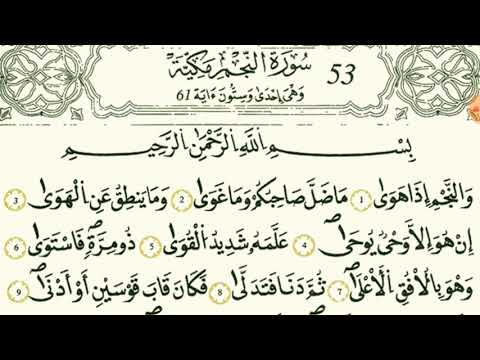 سُورَةُ النَّجْمِ مَكِّيَّةٌ 53
وَهْيَ إِحْدَىٰ وَسِتُّونَ ءَايَة 61
بِسْمِ اللَّهِ الرَّحْمَٰنِ الرَّحِيمِ
وَالنَّجْمِ إِذَا هَوَىٰ 1 مَا ضَلَّ صَاحِبُكُمْ وَمَا غَوَىٰ 2 وَمَا يَنطِقُ عَنِ الْهَوَىٰ 3
إِنْ هُوَ إِلَّا وَحْيٌ يُوحَىٰ 4 عَلَّمَهُ شَدِيدُ الْقُوَىٰ 5 ذُو مِرَّةٍ فَاسْتَوَىٰ 6
وَهُوَ بِالْأُفُقِ الْأَعْلَىٰ 7 ثُمَّ دَنَا فَتَدَلَّىٰ 8 فَكَانَ قَابَ قَوْسَيْنِ أَوْ أَدْنَىٰ 9